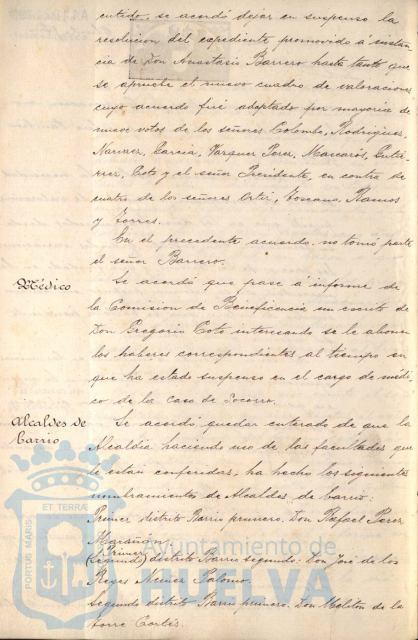 cutido, se acordó dejar en suspenso la
resolucion del espediente promovido á instan
cia de Don Anastasio Barrero hasta tanto que
se apruebe el nuevo cuadro de valoraciones
cuyo acuerdo fué adoptado por mayoria de
nueve votos de los señores Colombo, Rodriguez,
Narvaez, Garcia, Vazquez Perez, Mascarós, Gutié-
rrez, Coto y el señor Presidente, en contra de
cuatro de los señores Ortiz, Toscano, Ramos
y Torres.
En el precedente acuerdo no tomó parte
el señor Barrero.
Médico
Se acordó que pase á informe de
la Comision de Beneficencia un escrito de
Don Gregorio Coto interesando se le abonen
los haberes correspondientes al tiempo en
que ha estado suspenso en el cargo de médi
co de la Casa de Socorro.
Alcaldes de
barrio
Se acordó quedar enterado de que la
Alcaldía haciendo uso de las facultades que
le están conferidas, ha hecho los siguientes
nombramientos de Alcaldes de barrio:
Primer distrito Barrio primero: Don Rafael Perez
Marañon
(Primer)
(Segundo) distrito Barrio segundo: Don José de los
Reyes
Segundo distrito Barrio primero: Don Meliton de la
Torre Cortés.
PORTUS MARIS ET TERRÆ
Ayuntamiento de
HUELVA